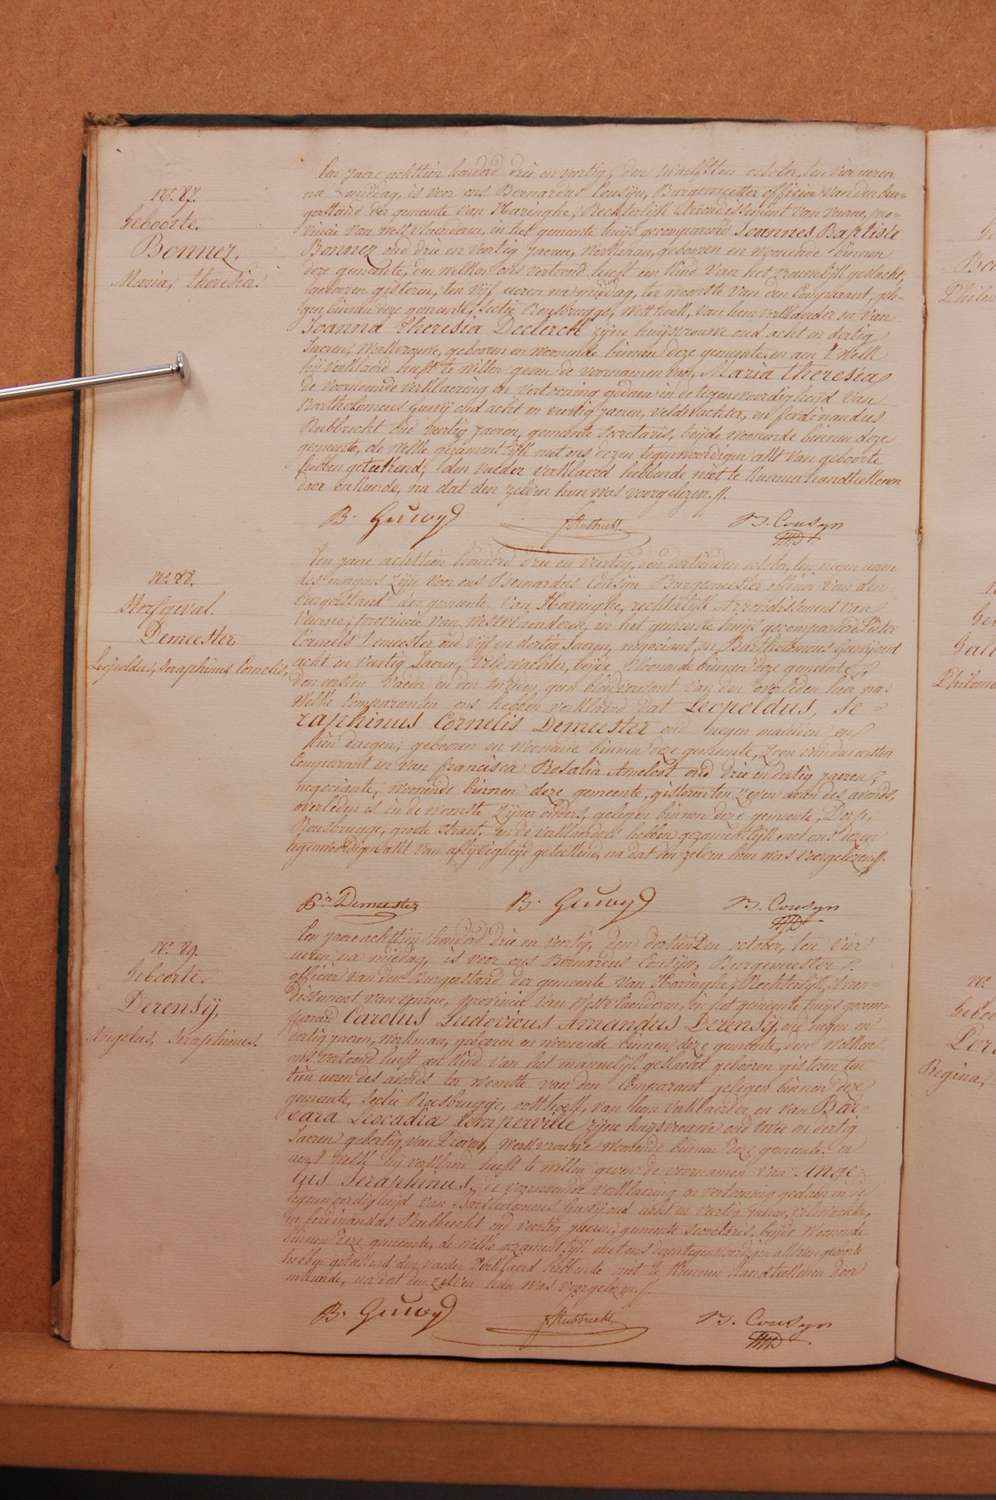 no. 87.
Geboorte.
Bonnez,
Maria, theresia.
Ten jaere achttien honderd drie en veertig, den twaelfsten october, ten vier uren
na middag, is voor ons Bernardus Cousijn, Burgemeester officier van den bur-
gerstand der gemeente van Haringhe, Rechterlijk Arrondissement van veurne, pro-
vincie van west vlaenderen, in het gemeente huijs gecompareerd Joannes Baptiste
Bonnez oud drie en veertig jaeren, werkman, geboren en woonende binnen
deze gemeente, den welken ons vertoond heeft een kind van het vrouwelijk geslacht,
geboren gisteren, ten vijf uren na middag, ter woonste van den Comparant, gele-
gen binnen deze gemeente, sectie Rousbrugge, van hem verklaerder en van
Joanna theresia Declerck zijne huijsvrouwe oud acht en dertig
jaeren, werkvrouwe, geboren en woonende binnen deze gemeente, en aen 't welk
hij verklaerd heeft te willen geven de voornamen van Maria theresia,
de voornoemde verklaering en vertooning gedaen in de tegenwoordigheijd van
Bartholomeus Gheuij oud acht en veertig jaeren, veldwachter, en ferdinandus
Rubbrecht oud veertig jaeren, gemeente secretaris, beijde woonende binnen deze
gemeente, de welke gezamentlijk met ons dezen tegenwoordigen akt van geboorte
hebben geteekend, den vader verklaerd hebbende niet te kunnen handteekenen
voor oirkonde, na dat den zelven hun was voorgelezen.
B. Geuwyd
f. Rubbrecht
B. Cousyn
no. 88.
Sterfgeval.
Demeester,
Leopoldus, Seraphinus Cornelis,
Ten jaere achttien honderd drie en veertig, den dertienden october, ten negen uren
des morgens zijn voor ons Bernardus Cousijn Burgemeester officier van den
burgerstand der gemeente van Haringhe, rechterlijk Arrondissement van
veurne, provincie van westvlaenderen, in het gemeente huijs gecompareerd Pieter
Cornelis Demeester oud vijf en dertig jaeren, negociant, en Bartholomeus Geuwijd oud
acht en veertig jaeren, veldwachter, beijde woonende binnen deze gemeente,
den eersten vader en den tweeden geen bloedverwant van den overleden hier na;
welke Comparanten ons hebben verklaerd dat Leopoldus, Se-
raphinus Cornelis Demeester oud negen maenden en
tien daegen, geboren en woonende binnen deze gemeente, zoon van den eersten
Comparant en van francisca Rosalia Ameloot oud drie en dertig jaeren,
negociante, woonende binnen deze gemeente, gisteren ten zeven uren des avonds,
overleden is in de woonste zijner ouders, gelegen binnen deze gemeente, Dorp
Rousbrugge, groote straet, en de verklaerders hebben gezamentlijk met ons dezen
tegenwoordigen akt van aflijvigheijd geteekend, na dat den zelven hun was voorgelezen.
P. Demeester
B. Geuwyd
B. Cousyn
no. 89.
Geboorte.
Derensij,
Angelus, Seraphinus.
Ten jaere achttien honderd drie en veertig, den dertienden october, ten vier
uren na middag, is voor ons Bernardus Cousijn, Burgemeester
officier van den Burgerstand der gemeente van Haringhe, Rechterlijk Arron-
dissement van veurne, provincie van westvlaenderen, in het gemeente huijs gecom-
pareerd Carolus Ludovicus Amandus Derensij, oud negen en
dertig jaeren, werkman, geboren en woonende binnen deze gemeente, den welken
ons vertoond heeft een kind van het mannelijk geslacht geboren gisteren ten
tien uren des avonds ter woonste van den Comparant gelegen binnen deze
gemeente, sectie Rousbrugge, van hem verklaerder en van Bar-
bara Leocadia Comperville zijne huijsvrouwe oud twee en dertig
jaeren werkvrouwe woonende binnen deze gemeente en
aen 't welk hij verklaerd heeft te willen geven de voornamen van Ange-
lus Seraphinus, de voornoemde verklaering en vertooning gedaen in de
tegenwoordigheijd van Bartholomeus Geuwijd oud acht en veertig jaeren, veldwachter,
en ferdinandus Rubbrecht oud veertig jaeren, gemeente secretaris, beijde woonende
binnen deze gemeente, de welke gezamentlijk met ons dezen tegenwoordigen akt van geboorte
hebben geteekend den vader verklaerd hebbende niet te kunnen handteekenen voor
oirkonde, na dat den zelven hun was voorgelezen.
B. Geuwyd
f. Rubbrecht
B. Cousyn